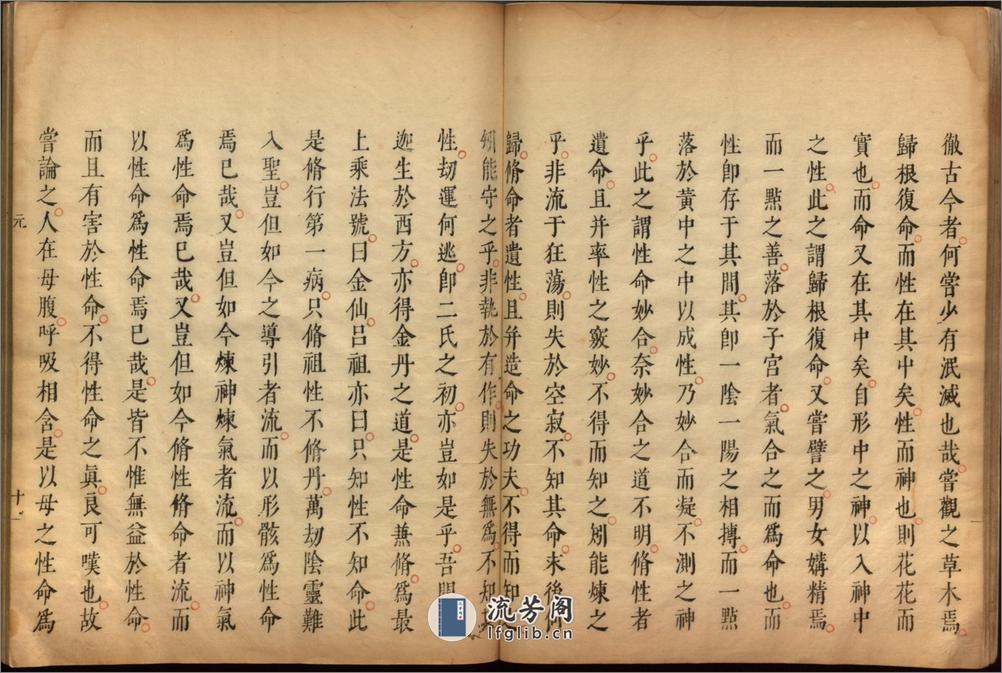 徹古今者何嘗少有泯滅也哉嘗觀之草木焉
歸根復命而性在其中矣性而神也則花花而
實也而命又在其中矣自形中之神以入神中
之性此之謂歸根復命又嘗譬之男女媾精焉
而一點之善落於子宮者氣合之而爲命也而
性卽存于其間其卽一陰一陽之相摶而一點
落於黃中之中以成性乃妙合而凝不測之神
乎此之謂性命妙合奈妙合之道不明修性者
遺命且并率性之竅妙不得而知之矧能煉之
乎非流于狂蕩則失於空寂不知其命末後
歸修命者遺性且并造命之功夫不得而知
矧能守之乎非執於有作則失於無爲不知
性劫運何逃卽二氏之初亦豈如是乎吾聞
迦生於西方亦得金丹之道是性命兼修爲最
上乘法號曰金仙呂祖亦曰只知性不知命此
是修行第一病只修祖性不修丹萬劫陰靈難
入聖豈但如今之導引者流而以形骸爲性命
焉已哉又豈但如今煉神煉氣者流而以神氣
爲性命焉已哉又豈但如今修性修命者流而
以性命爲性命焉已哉是皆不惟無益於性命
而且有害於性命不得性命之眞良可嘆也故
嘗論之人在母腹呼吸相含是以母之性命爲
元 十
流芳阁
lfglib.cn